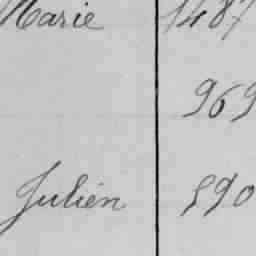 Marie 1487
969
Julien 590